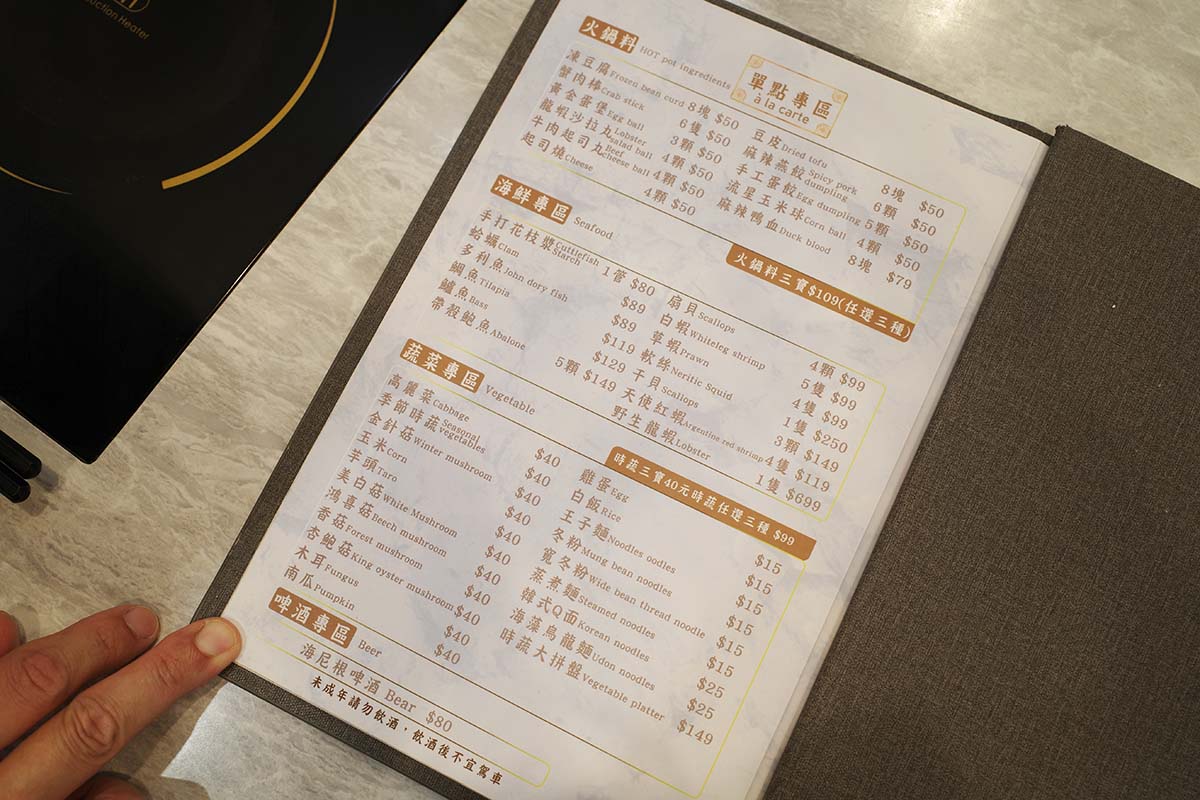 Induction Heater
單點專區
à la carte
火鍋料 HOT pot ingredients
凍豆腐 Frozen bean curd 8塊 $50
蟹肉棒 Crab stick 6隻 $50
黃金蛋堡 Egg ball 3顆 $50
龍蝦沙拉丸 Lobster salad ball 4顆 $50
牛肉起司丸 Beef cheese ball 4顆 $50
起司燒 Cheese 4顆 $50
豆皮 Dried tofu 8塊 $50
麻辣燕餃 Spicy pork dumpling 6顆 $50
手工蛋餃 Egg dumpling 5顆 $50
流星玉米球 Corn ball 4顆 $50
麻辣鴨血 Duck blood 8塊 $79
火鍋料三寶$109(任選三種)
海鮮專區 Seafood
手打花枝漿 Cuttlefish Starch 1管 $80
蛤蠣 Clam $89
多利魚 John dory fish $89
鯛魚 Tilapia $119
鱸魚 Bass $129
帶殼鮑魚 Abalone 5顆 $149
扇貝 Scallops 4顆 $99
白蝦 Whiteleg shrimp 5隻 $99
草蝦 Prawn 4隻 $99
軟絲 Neritic Squid 1隻 $250
干貝 Scallops 3顆 $149
天使紅蝦 Argentine red shrimp 4隻 $119
野生龍蝦 Lobster 1隻 $699
蔬菜專區 Vegetable
時蔬三寶40元時蔬任選三種 $99
高麗菜 Cabbage $40
季節時蔬 Seasonal vegetables $40
金針菇 Winter mushroom $40
玉米 Corn $40
芋頭 Taro $40
美白菇 White Mushroom $40
鴻喜菇 Beech mushroom $40
香菇 Forest mushroom $40
杏鮑菇 King oyster mushroom $40
木耳 Fungus $40
南瓜 Pumpkin $40
雞蛋 Egg $15
白飯 Rice $15
王子麵 Noodles oodles $15
冬粉 Mung bean noodles $15
寬冬粉 Wide bean thread noodle $15
蒸煮麵 Steamed noodles $15
韓式Q面 Korean noodles $25
海藻烏龍麵 Udon noodles $25
時蔬大拼盤 Vegetable platter $149
啤酒專區 Beer
海尼根啤酒 Bear $80
未成年請勿飲酒，飲酒後不宜駕車